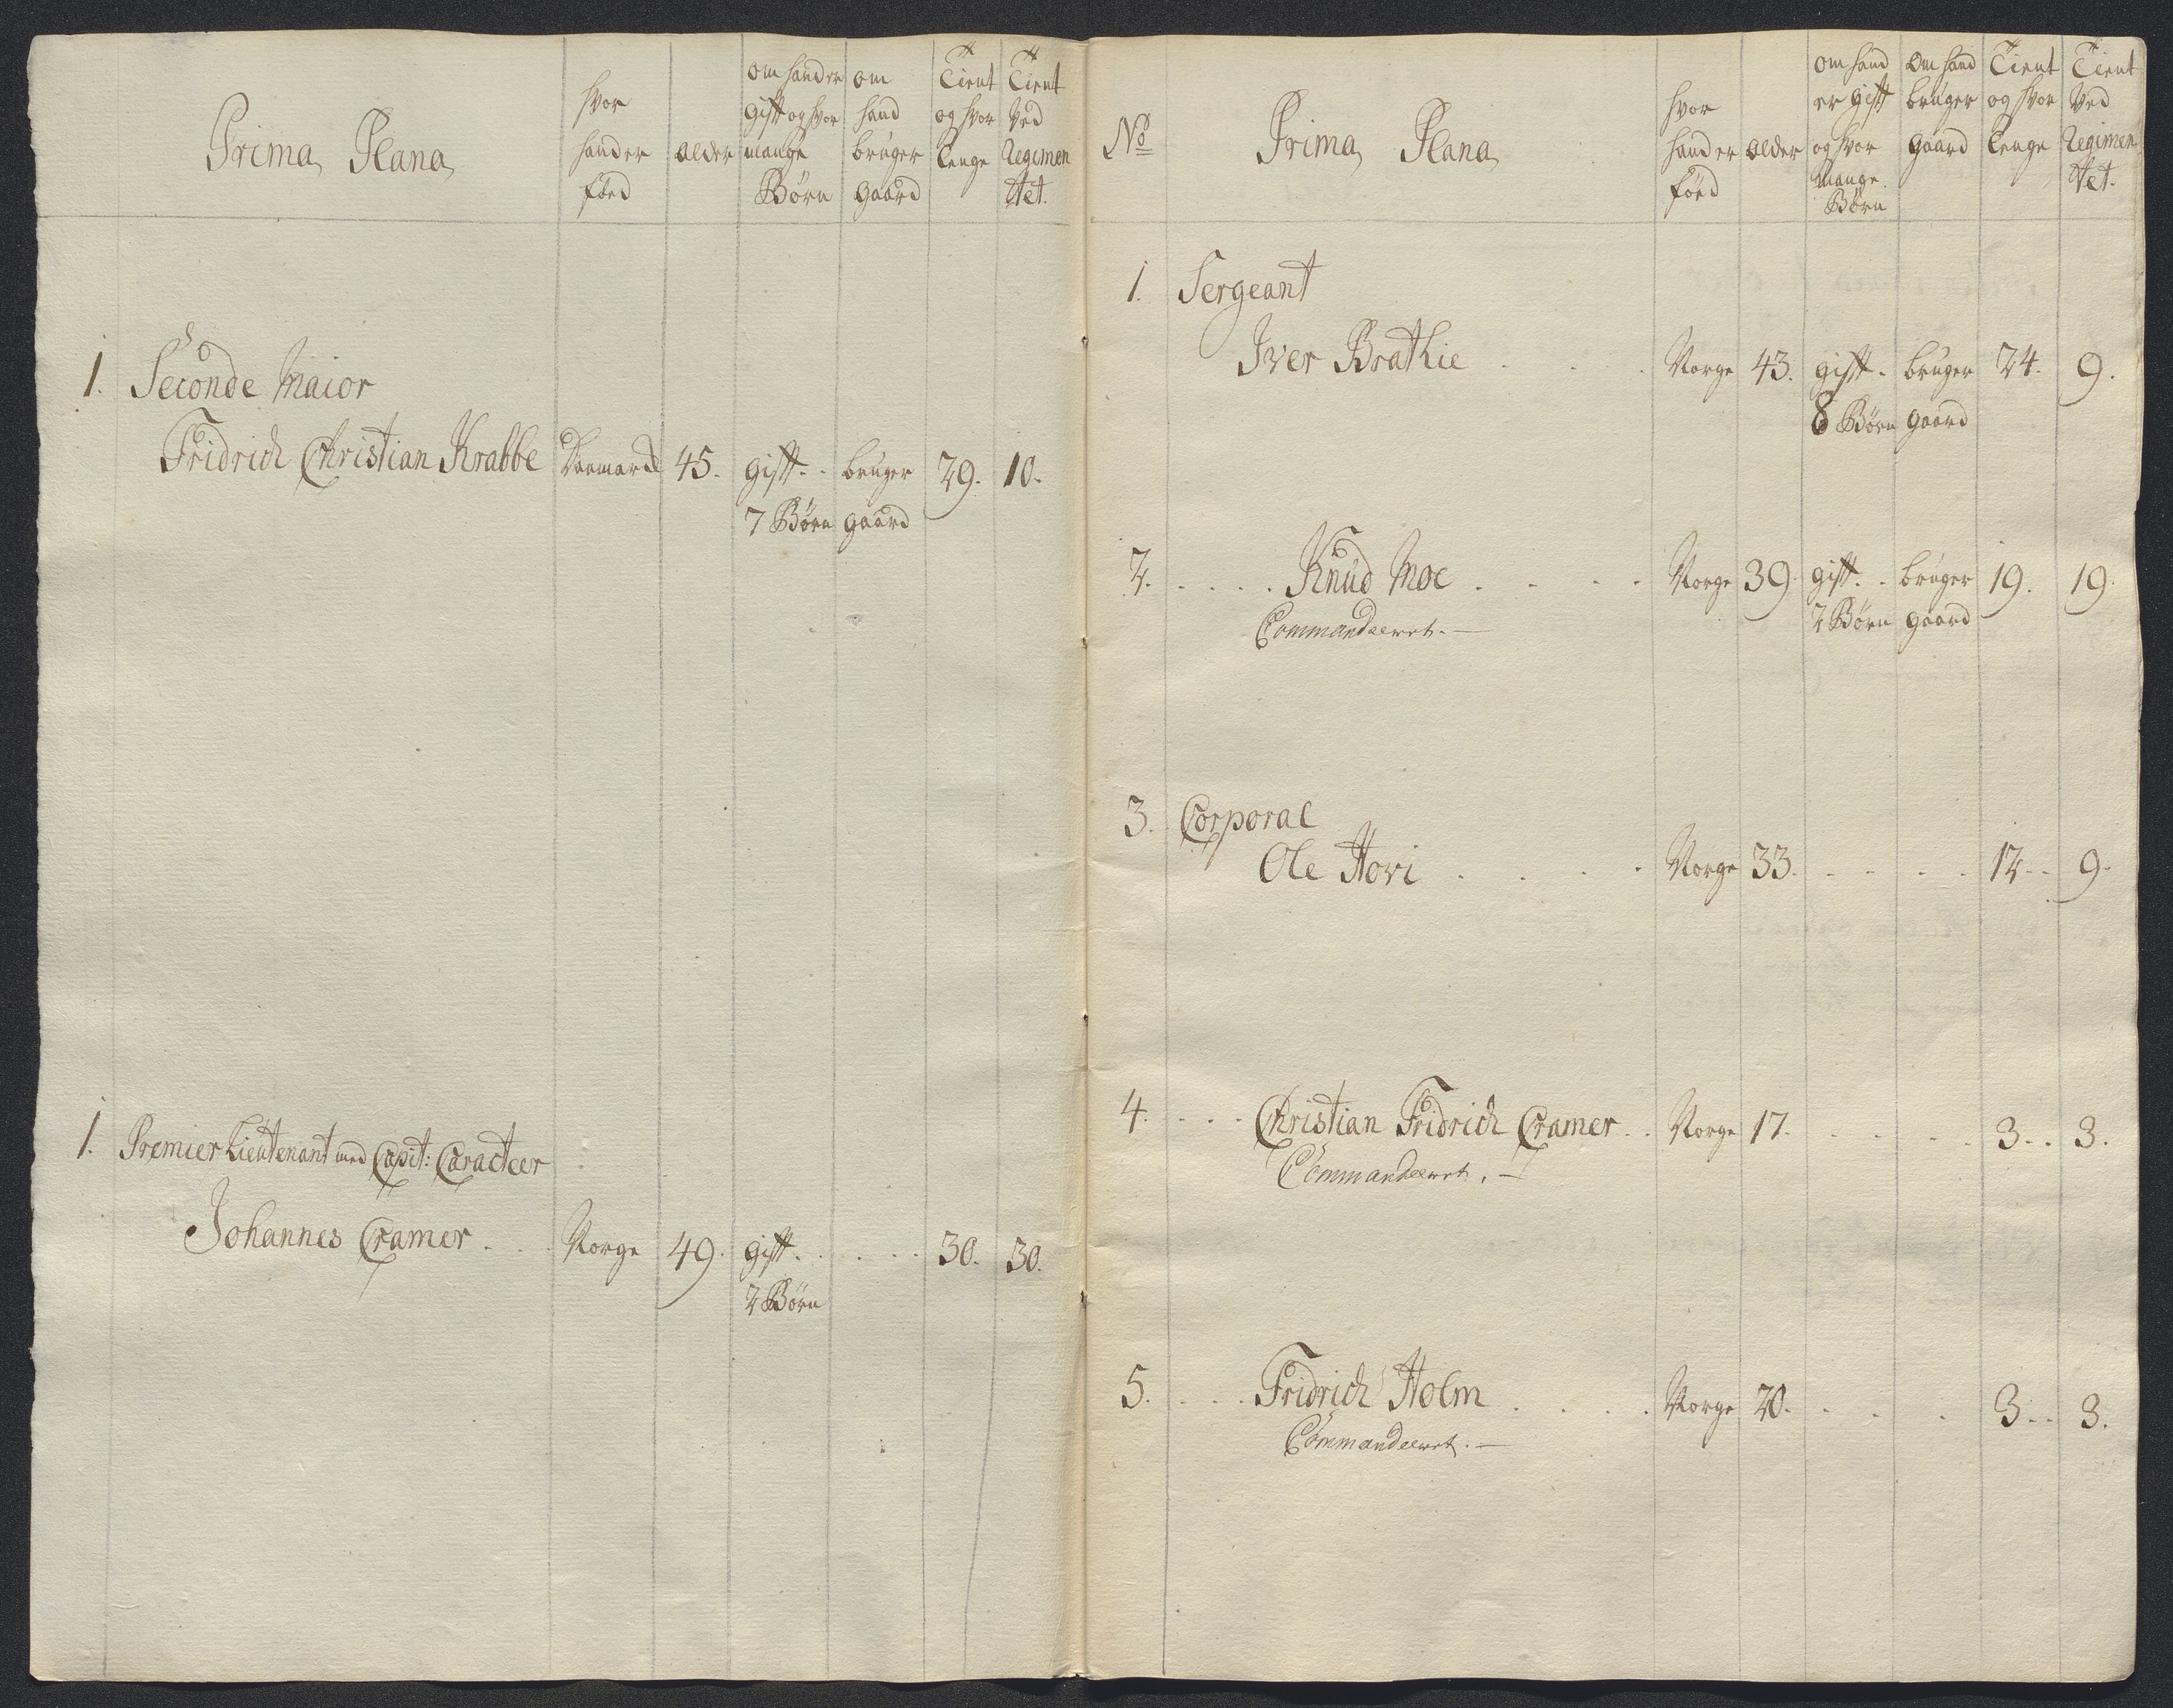 Prima Plana
hvor hand er föed
alder
om hand er gift og hvor mange Börn
om hand bruger gaard
Tient og hvor lenge
Tient ved Regimentet.
1. Seconde Maior
Fridrich Christian Krabbe Danmarck 45. gift. bruger 29. 10.
7 Börn gaard
1. Premier Lieutenant med Capit: Caracteer
Johannes Cramer . . Norge 49. gift. . . . . 30. 30.
2 Börn
No
Prima Plana
hvor hand er föed
alder
om hand er gift og hvor mange Börn
Om hand bruger gaard
Tient og hvor lenge
Tient ved Regimentet.
1. Sergeant
Iver Brathie . . . Norge 43. gift. bruger 24. 9.
8 Börn gaard
2. . . . . Knud Moe . . . . Norge 39. gift. . bruger 19. 19.
Commandeeret. — 2 Börn gaard
3. Corporal
Ole Hovi . . . . Norge 33. . . . . 12. . 9.
4. . . . Christian Fridrich Cramer . . Norge 17. . . . . 3. . 3.
Commandeeret. —
5. . . . Fridrich Holm . . . . Norge 20. . . . 3. . 3.
Commandeeret. —